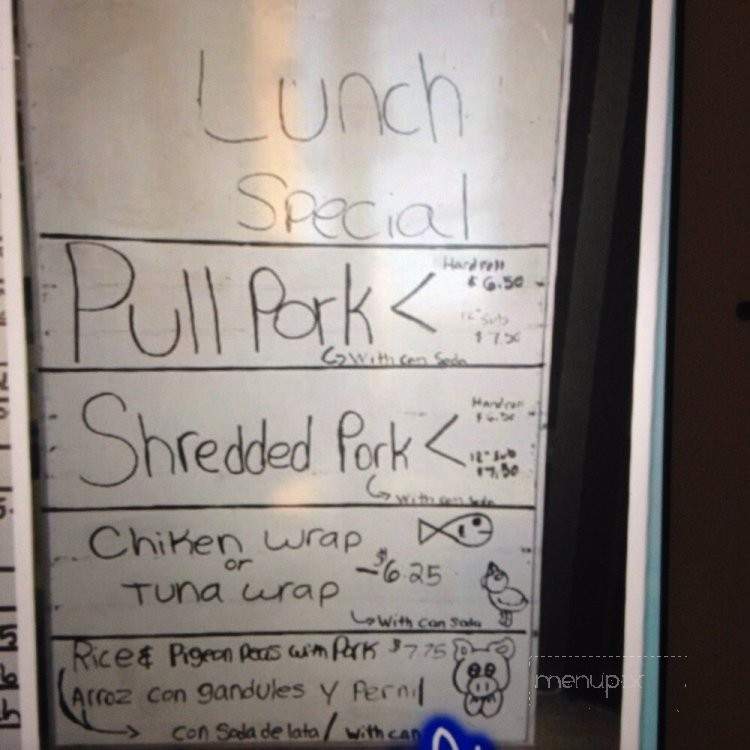 Lunch
Special
Pull Pork <
Hard roll
$ 6.50
12" Sub
$ 7.50
With can Soda
Shredded Pork <
Hard roll
$6.50
12" Sub
$7.50
With can Soda
Chiken wrap
or
Tuna wrap
- $6.25
With can Soda
Rice & Pigeon Peas with Pork $7.75
Arroz con gandules y Pernil
con Soda de lata / with can
menupix
5